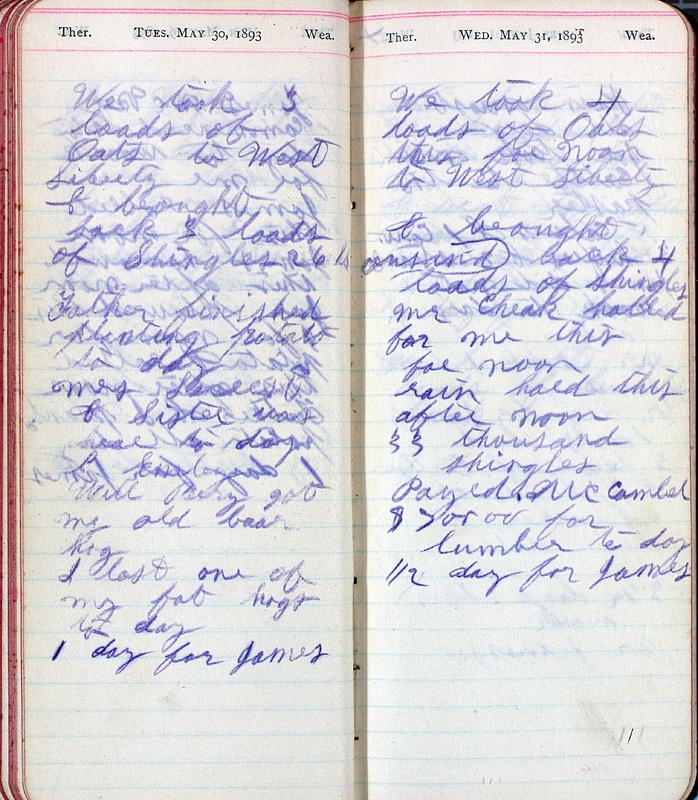 Ther. TUES. MAY 30, 1893 Wea.
We took 3
loads of
Oats to West
Liberty
& brought
back 3 loads
of Shingles 26
Father finished
planting potato
to day
mrs
& Sister was
hear to day
&
Will Perry got
my old boar
hig
I lost one of
my fat hogs
to day
1 day for James
Ther. WED. MAY 31, 1893 Wea.
We took 4
loads of Oats
this foe noon
to West Liberty
& brought
back 4
loads of shingles
mr Cheak halled
for me this
foe noon
rain hold this
after noon
33 thousand
shingles
Payed Mc Cambel
$ 700 00 for
lumber to day
1/2 day for James